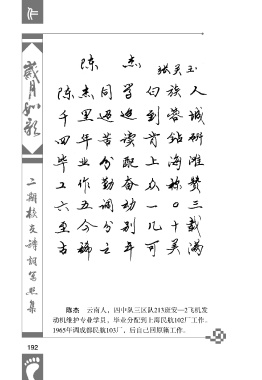 岁月如歌
二期校友诗词写照集
陈 杰 张关玉
陈杰同学白族人
千里迢迢到蓉城
四年苦读肯钻研
毕业分配上海滩
工作勤奋众称赞
六五调动一〇三
至今分别几十载
古稀之年可美满
陈杰 云南人，四中队三区队213班安—2飞机发
动机维护专业学员，毕业分配到上海民航102厂工作。
1965年调成都民航103厂，后自己回原籍工作。
192